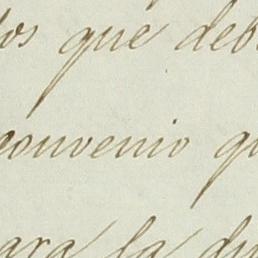 los que deb
convenio qu
ara la du